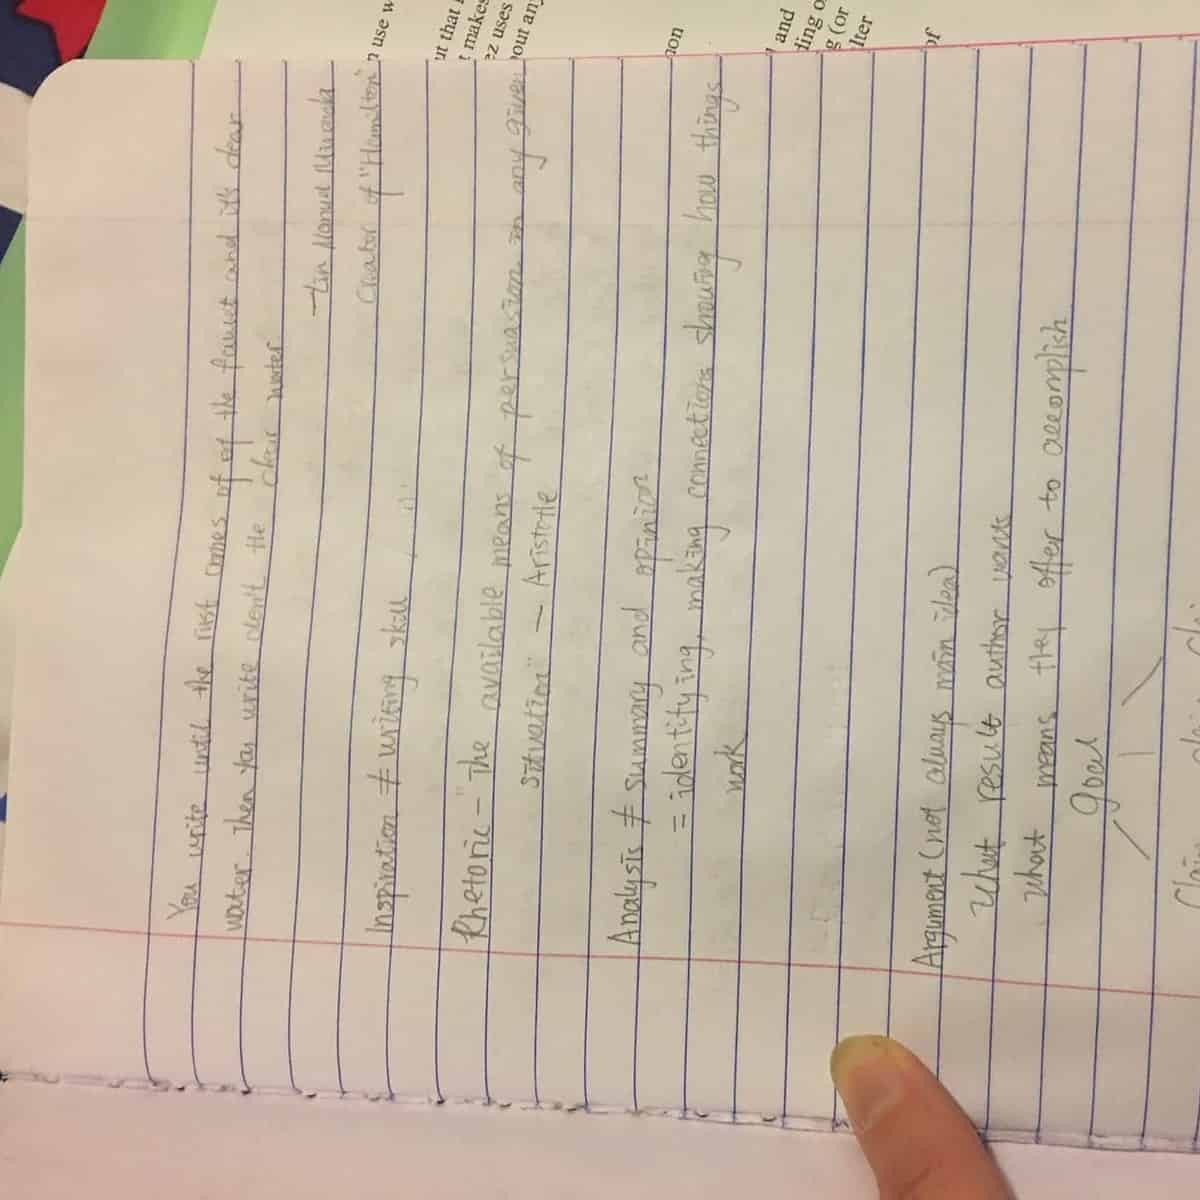 You write until the rist comes of of the fauset and it's clear
water. Then you write don't the clear water
-Lin Manuel Miranda
Creator of "Hamilton"
Inspiration ≠ writing skill
Rhetoric - "The available means of persuasion in any given
situation" - Aristotle
Analysis ≠ summary and opinion
= identifying, making connections showing how things
work
Argument (not always main idea)
What result author wants
what means they offer to accomplish
goal
use
that
makes
uses
out any
and
(or
of